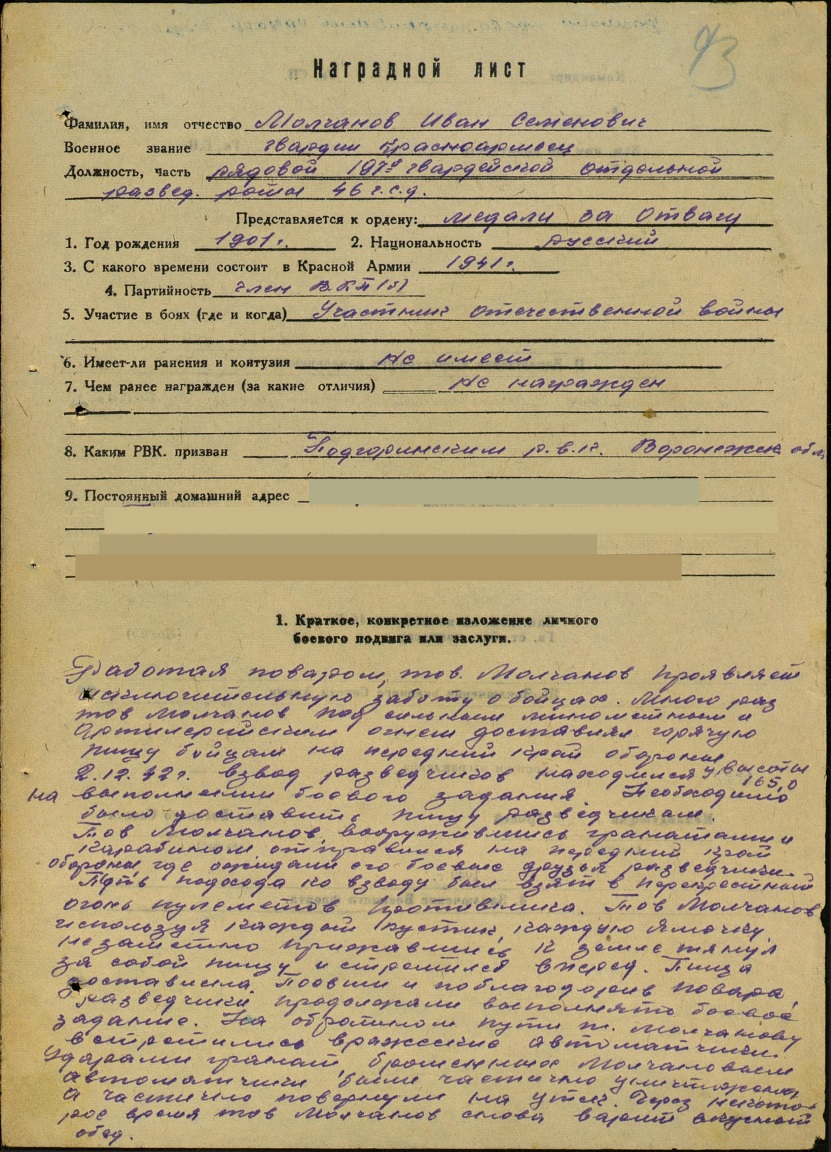 93
Наградной лист
Фамилия, имя отчество Молчанов Иван Семенович
Военное звание гвардии красноармеец
Должность, часть рядовой 197й гвардейской отдельной
развед. роты 46 г.с.д.
Представляется к ордену: медали за Отвагу
1. Год рождения 1901г. 2. Национальность русский
3. С какого времени состоит в Красной Армии 1941г.
4. Партийность член ВКП(б)
5. Участие в боях (где и когда) Участник отечественной войны
6. Имеет-ли ранения и контузия Не имеет
7. Чем ранее награжден (за какие отличия) Не награжден
8. Каким РВК. призван Подгоринским р.в.к. Воронежск обл.
9. Постоянный домашний адрес
1. Краткое, конкретное изложение личного
боевого подвига или заслуги.
Работая поваром, тов. Молчанов проявляет
исключительную заботу о бойцах. Много раз
тов Молчанов под сильным минометным и
артилерийским огнем доставлял горячую
пищу бойцам на передний край обороны
2.12.42г. взвод разведчиков находился у высоты 165,0
на выполнении боевого задания. Необходимо
было доставить пищу разведчикам.
Тов Молчанов, вооружившись гранатами и
карабином отправился на передний край
обороны где ожидали его боевые друзья разведчики.
Путь подхода ко взводу был взят в перекрестный
огонь пулеметов противника. Тов Молчанов
используя каждый кустик, каждую ямочку
незаметно прижавшись к земле тянул
за собой пищу и стремился вперед. Пища
доставлена. Поевши и поблагодорив повара,
разведчики продолжали выполнять боевое
задание. На обратном пути т. Молчанову
встретились вражеские автоматчики.
Ударами гранат, брошенных Молчановым
автоматчики были частично уничтожены
а частично повернули на утек. Через некото-
рое время тов Молчанов снова варит вкусный
обед.